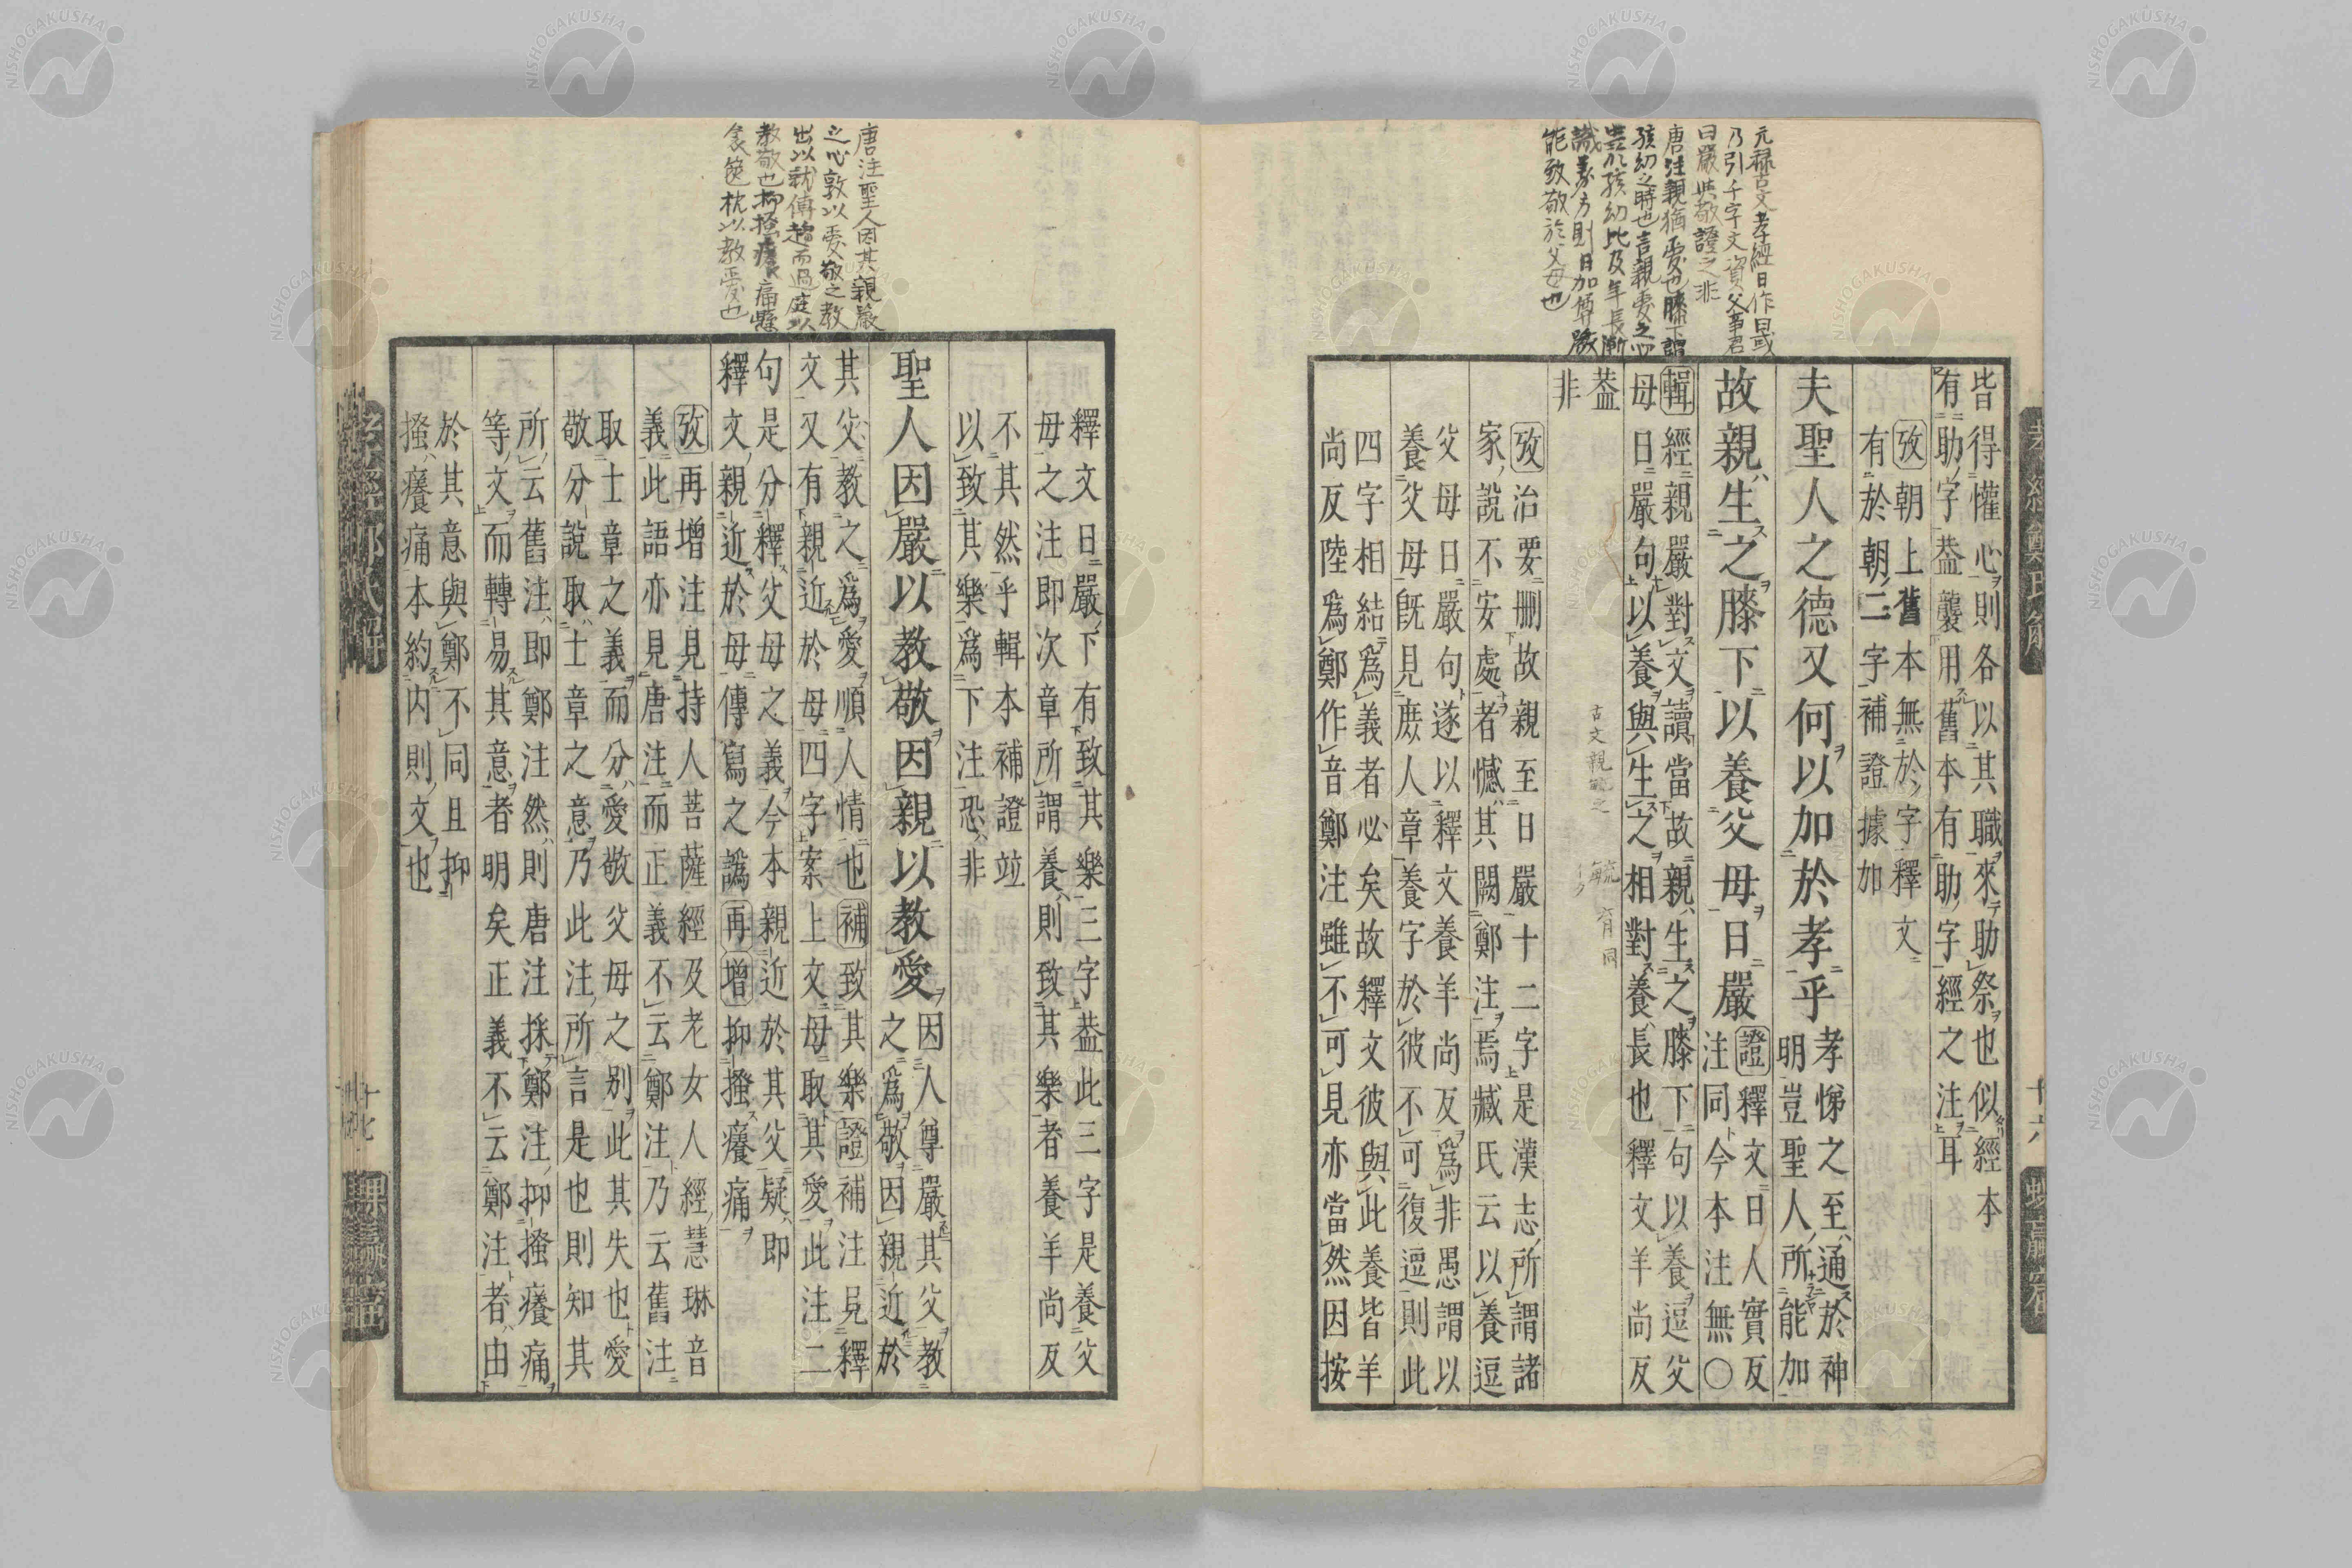 元祿古文孝經日作曰或
乃引千字文資父事君
曰嚴與敬證之非
唐注親猶愛也膝下謂
孩幼之時也言親愛之心
生於孩幼比及年長漸
識義方則日加尊嚴
能致敬於父母也
皆得懽心則各以其職來助祭也似經本
有助字蓋襲用舊本有助字經之注耳
攷朝上舊本無於字釋文
有於朝二字補證據加
夫聖人之德又何以加於孝乎
孝悌之至通於神
明豈聖人所能加
故親生之膝下以養父母日嚴
證釋文日人實反
注同今本注無〇
輯經親嚴對文讀當故親生之膝下句以養逗父
母日嚴句以養與生之相對養長也釋文羊尚反
蓋
非
攷治要刪故親至日嚴十二字是漢志所謂諸
家說不安處者憾其闕鄭注焉臧氏云以養逗
父母日嚴句遂以釋文養羊尚反爲非愚謂以
養父母既見庶人章養字於彼不可復逗則此
四字相結爲義者必矣故釋文彼與此養皆羊
尚反陸爲鄭作音鄭注雖不可見亦當然因按
孝經鄭氏解
十六
唐注聖人因其親嚴
之心敦以愛敬之教
出以就傅趨而過庭以
教敬也抑搔癢痛懸
衾篋枕以教愛也
釋文日嚴下有致其樂三字蓋此三字是養父
母之注即次章所謂養則致其樂者養羊尚反
不其然乎輯本補證竝
以致其樂爲下注恐非
聖人因嚴以教敬因親以教愛
因人尊嚴其父教
之爲敬因親近於
其父教之爲愛順人情也補致其樂證補注見釋
文又有親近於母四字案上文母取其愛此注二
句是分釋父母之義今本親近於其父疑即
釋文親近於母傳寫之譌再增抑搔癢痛
攷再增注見持人菩薩經及老女人經慧琳音
義此語亦見唐注而正義不云鄭注乃云舊注
取士章之義而分愛敬父母之別此其失也愛
敬分說取士章之意乃此注所言是也則知其
所云舊注即鄭注然則唐注採鄭注抑搔癢痛
等文而轉易其意者明矣正義不云鄭注者由
於其意與鄭不同且抑
搔癢痛本約內則文也
孝經鄭氏解
十七